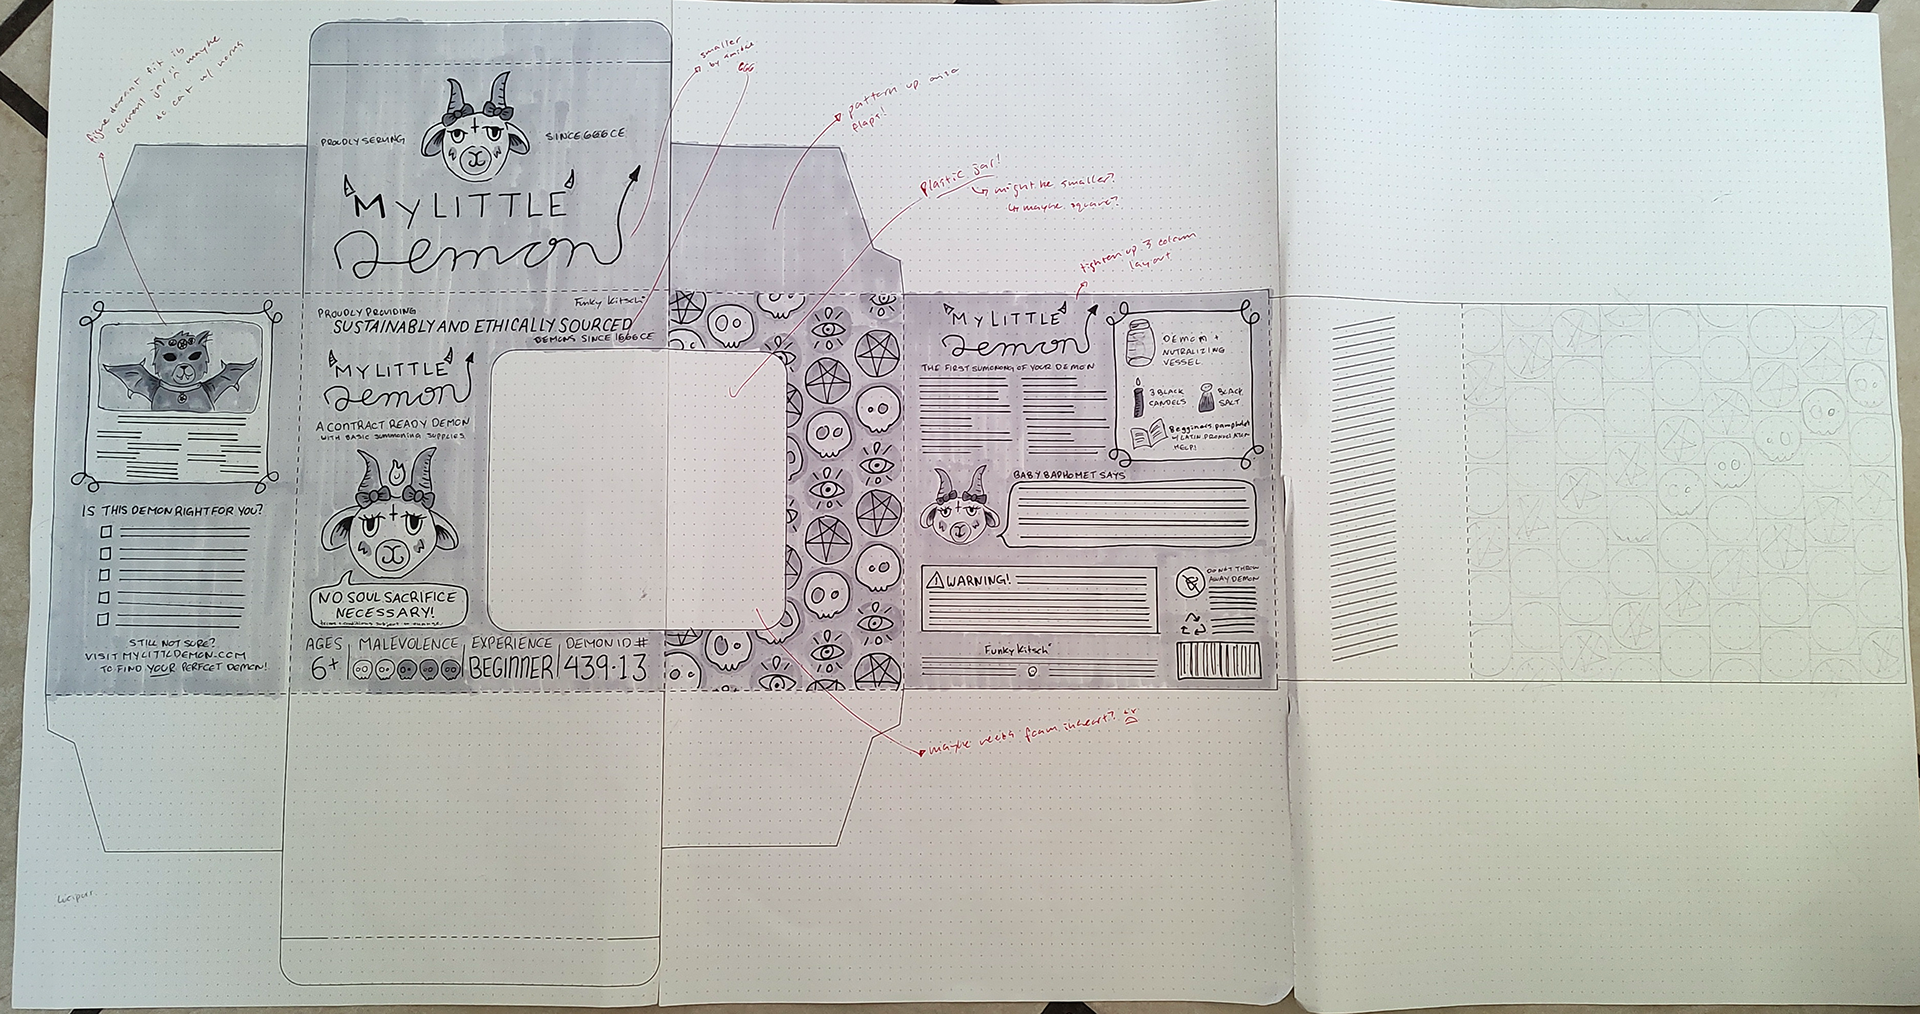 figure doesn't fit in
current jar :( maybe
a cat w/ horns
smaller
by smidge
666
pattern up onto
flaps!
plastic jar!
↳ might be smaller?
↳ maybe square?
tighten up 3 column
layout
PROUDLY SERVING
SINCE 666 CE
MY LITTLE
Demon
PROUDLY PROVIDING
Funky Kitsch
SUSTAINABLY AND ETHICALLY SOURCED
DEMONS SINCE 1666 CE
MY LITTLE
Demon
A CONTRACT READY DEMON
WITH BASIC SUMMONING SUPPLIES
NO SOUL SACRIFICE
NECESSARY!
AGES
6+
MALEVOLENCE
EXPERIENCE
BEGINNER
DEMON ID #
439·13
IS THIS DEMON RIGHT FOR YOU?
STILL NOT SURE?
VISIT MYLITTLDEMON.COM
TO FIND YOUR PERFCET DEMON!
MY LITTLE
Demon
THE FIRST SUMONONG OF YOUR DEMON
DEMON +
NUTRALIZING
VESSEL
3 BLACK
CANDELS
BLACK
SALT
Begginers pamphlet
W/ LATIN PRONUNCIATION
HELP!
BABY BAPHOMET SAYS
WARNING!
DO NOT THROW
AWAY DEMON
Funky Kitsch
maybe needs foam insheart?
Lucipurr